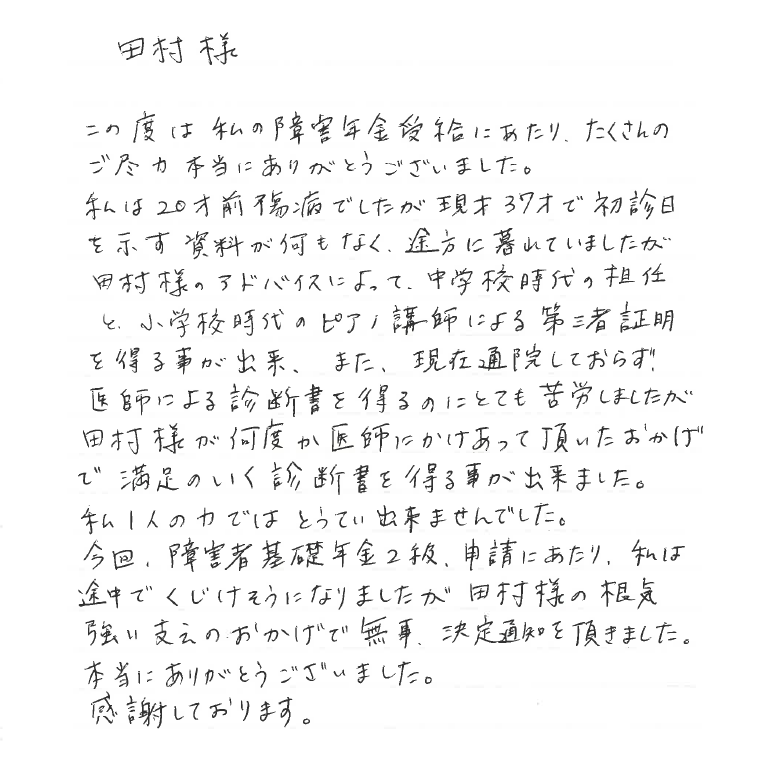 田村様
この度は私の障害年金受給にあたり、たくさんの
ご尽力本当にありがとうございました。
私は20才前傷病でしたが現才37才で初診日
を示す資料が何もなく、途方に暮れていましたが
田村様のアドバイスによって、中学校時代の担任
と、小学校時代のピアノ講師による第三者証明
を得る事が出来、また、現在通院しておらず、
医師による診断書を得るのにとても苦労しましたが
田村様が何度か医師にかけあって頂いたおかげ
で満足のいく診断書を得る事が出来ました。
私1人の力ではとうてい出来ませんでした。
今回、障害者基礎年金2級、申請にあたり、私は
途中でくじけそうになりましたが田村様の根気
強い支えのおかげで無事、決定通知を頂きました。
本当にありがとうございました。
感謝しております。